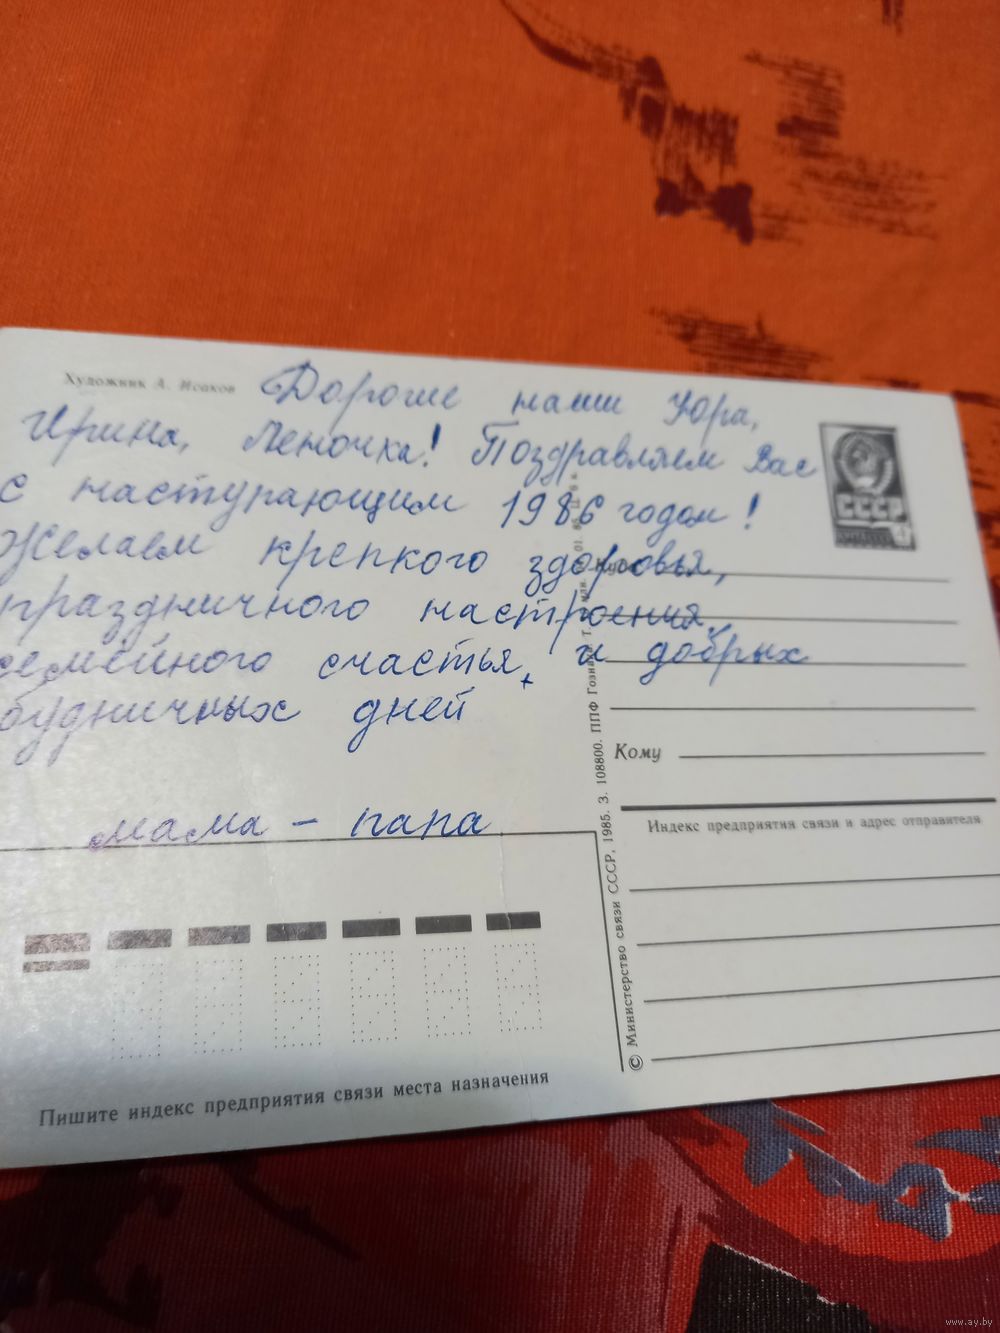 Художник А. Исаков
Дорогие наши Юра,
Ирина, Леночка! Поздравляем Вас
с наступающим 1986 годом!
Желаем крепкого здоровья,
праздничного настроения,
семейного счастья, и добрых
будничных дней
мама - папа
СССР
Кому
Индекс предприятия связи и адрес отправителя
© Министерство связи СССР, 1985. З. 108800. ППФ Гознака.
Пишите индекс предприятия связи места назначения
www.ay.by